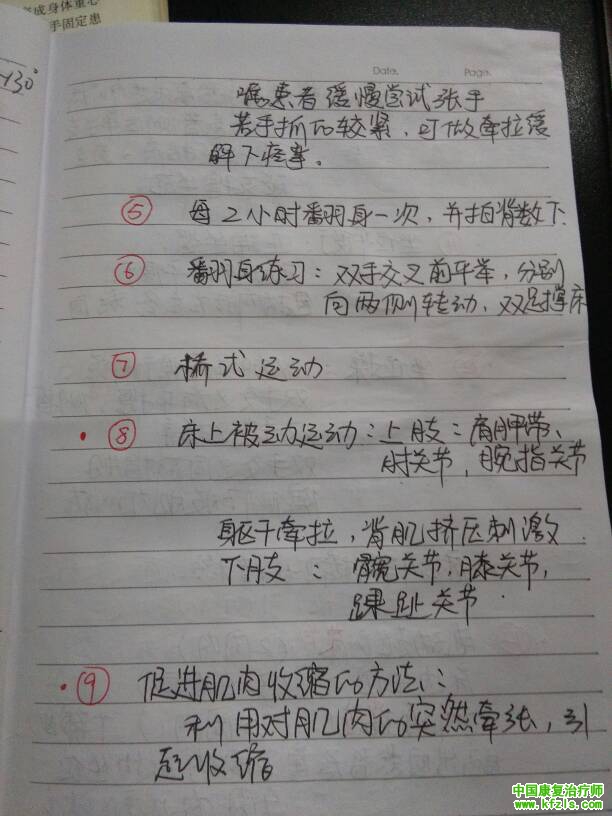 成身体重心
手固定患
~130°
Date.
Page.
嘱患者缓慢尝试张手
若手抓的较紧,可做牵拉缓
解下痉挛。
⑤ 每2小时翻身一次,并拍背数下.
⑥ 翻身练习:双手交叉前平举,分别
向两侧转动,双足撑床
⑦ 桥式运动
·⑧ 床上被动运动:上肢:肩胛带、
肘关节,腕指关节
躯干牵拉,背肌挤压刺激.
下肢:髋关节,膝关节,
踝趾关节.
·⑨ 促进肌肉收缩的方法:
利用对肌肉的突然牵张,引
起收缩
中国康复治疗师
www.kfzle.com